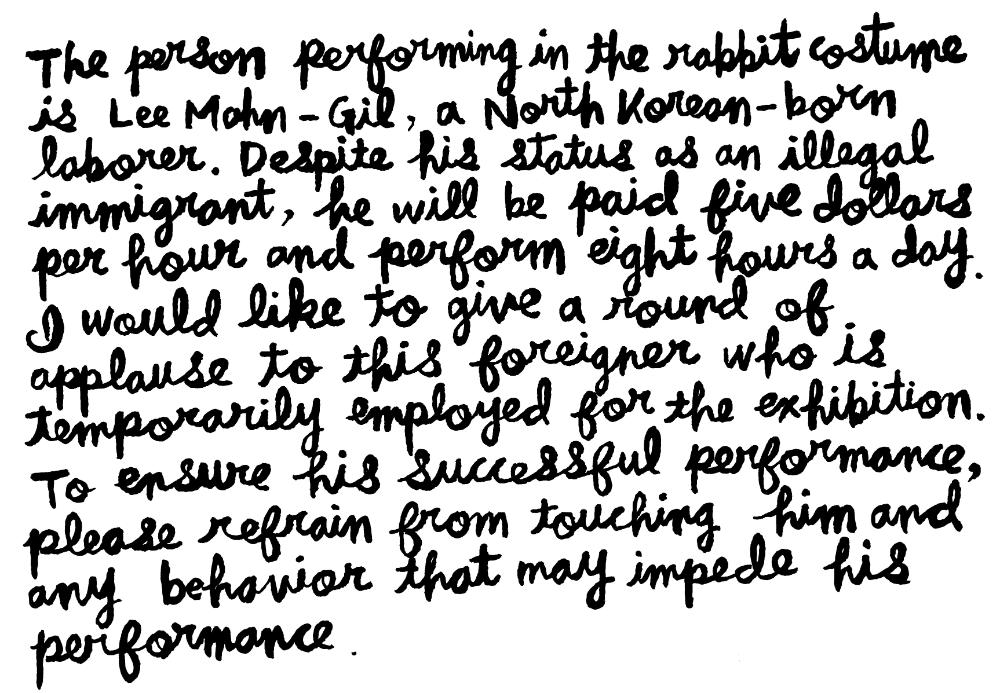 The person performing in the rabbit costume
is Lee Mahn-Gil, a North Korean-born
laborer. Despite his status as an illegal
immigrant, he will be paid five dollars
per hour and perform eight hours a day.
I would like to give a round of
applause to this foreigner who is
temporarily employed for the exhibition.
To ensure his successful performance,
please refrain from touching him and
any behavior that may impede his
performance.